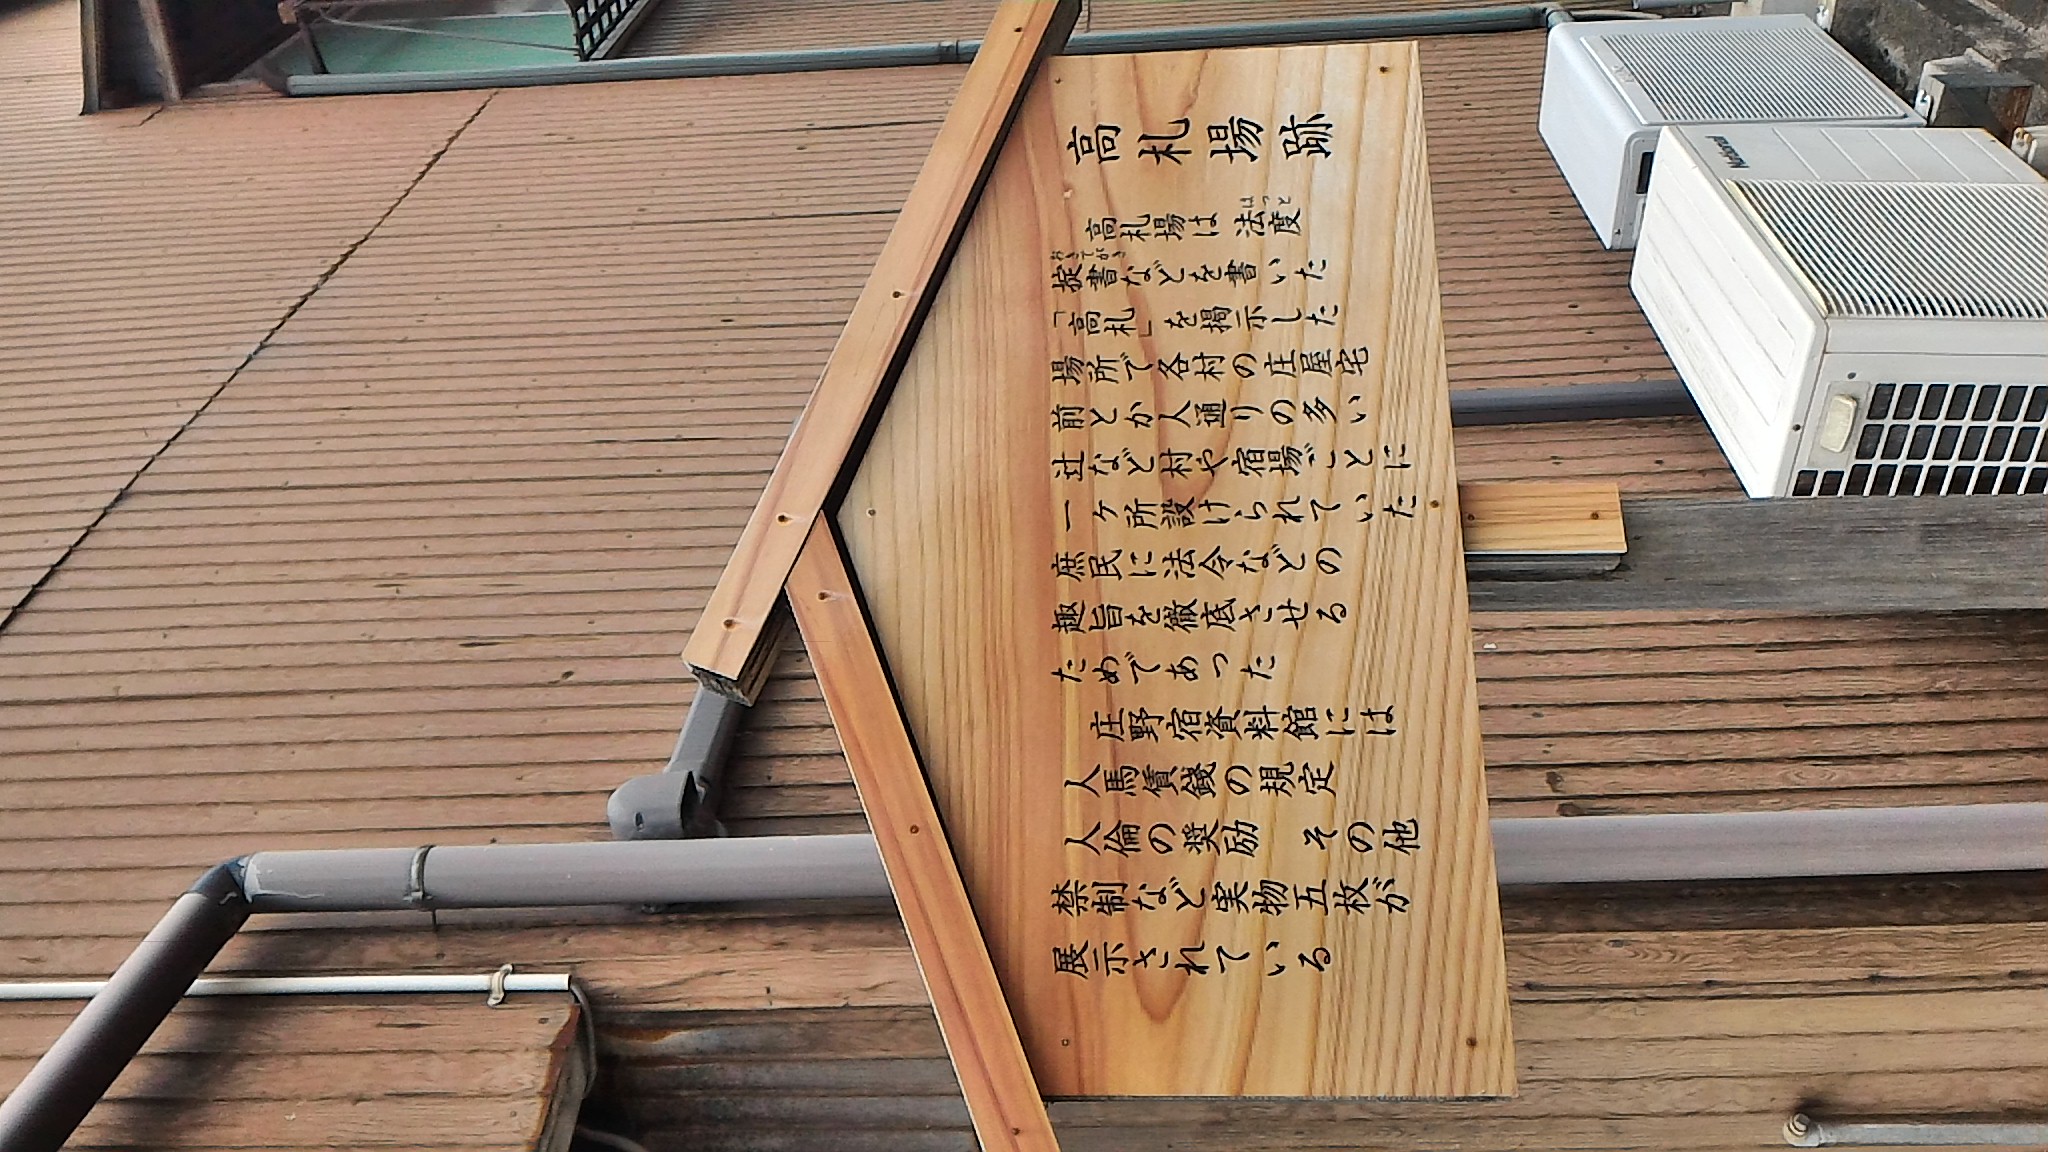 高札場跡
高札場は法度
はっと
掟書などを書いた
おきてがき
「高札」を掲示した
場所で各村の庄屋宅
前とか人通りの多い
辻など村や宿場ごとに
一ケ所設けられていた
庶民に法令などの
趣旨を徹底させる
ためであった
庄野宿資料館には
人馬賃銭の規定
人倫の奨励　その他
禁制など実物五枚が
展示されている
National